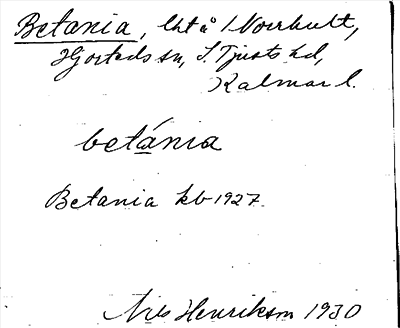 Betania, lht å 1 Norrhult,
Hjorteds sn, S. Tjusts hd,
Kalmar l.
betánia
Betania kb 1927.
Nils Henriksson 1930